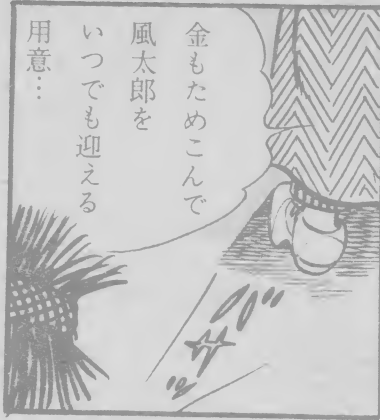 金もためこんで
風太郎を
いつでも迎える
用意…
グサッ